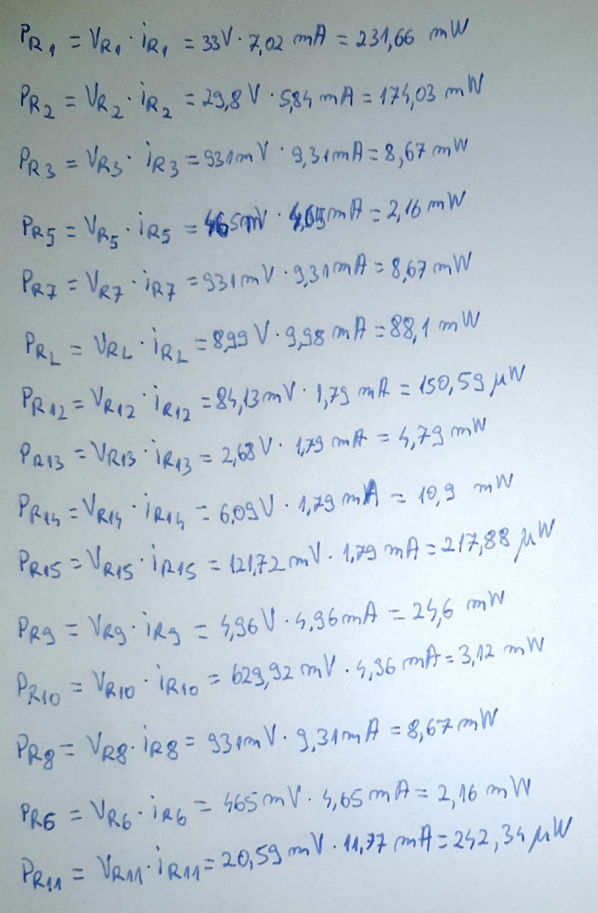 P_R1 = V_R1 · i_R1 = 33V · 7,02 mA = 231,66 mW
P_R2 = V_R2 · i_R2 = 29,8 V · 5,84 mA = 174,03 mW
P_R3 = V_R3 · i_R3 = 931mV · 9,31mA = 8,67 mW
P_R5 = V_R5 · i_R5 = 465mV · 4,65mA = 2,16 mW
P_R7 = V_R7 · i_R7 = 931mV · 9,31mA = 8,67 mW
P_RL = V_RL · i_RL = 8,99 V · 9,98 mA = 88,1 mW
P_R12 = V_R12 · i_R12 = 84,13mV · 1,79 mA = 150,59 μW
P_R13 = V_R13 · i_R13 = 2,68V · 1,79 mA = 4,79 mW
P_R14 = V_R14 · i_R14 = 6,09V · 1,79 mA = 10,9 mW
P_R15 = V_R15 · i_R15 = 121,72 mV · 1,79 mA = 217,88 μW
P_R9 = V_R9 · i_R9 = 4,96V · 4,96mA = 24,6 mW
P_R10 = V_R10 · i_R10 = 629,92 mV · 4,96 mA = 3,12 mW
P_R8 = V_R8 · i_R8 = 931mV · 9,31mA = 8,67mW
P_R6 = V_R6 · i_R6 = 465mV · 4,65mA = 2,16 mW
P_R11 = V_R11 · i_R11 = 20,59 mV · 11,77 mA = 242,34 μW